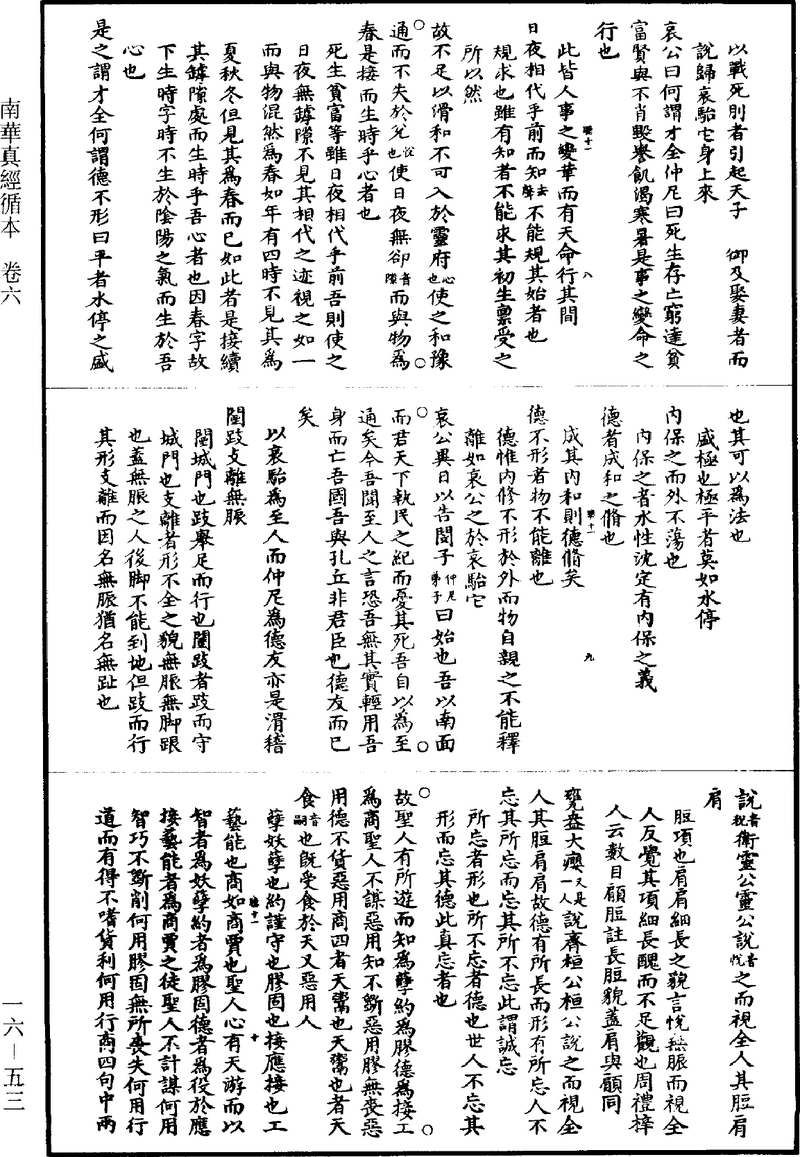 南華真經循本　卷六
一六—五三
以戰死則者引起天子　御及娶妻者而
說歸哀駘它身上來
哀公曰何謂才全仲尼曰死生存亡窮達貧
富賢與不肖毀譽飢渴寒暑是事之變命之
行也
此皆人事之變華而有天命行其間
日夜相代乎前而知去聲不能規其始者也
規求也雖有知者不能求其初生稟受之
所以然
故不足以滑和不可入於靈府心也使之和豫
通而不失於兌悅也使日夜無郤音隙而與物為
春是接而生時乎心者也
死生貧富等雖日夜相代乎前吾則使之
日夜無罅隙不見其相代之迹視之如一
而與物混然為春如年有四時不見其為
夏秋冬但見其為春而已如此者是接續
其罅隙處而生時乎吾心者也因春字故
下生時字時不生於陰陽之氣而生於吾
心也
是之謂才全何謂德不形曰平者水停之盛
也其可以為法也
盛極也極平者莫如水停
內保之而外不蕩也
內保之者水性沈定有內保之義
德者成和之脩也
成其內和則德脩矣
德不形者物不能離也
德惟內修不形於外而物自親之不能釋
離如哀公之於哀駘它
哀公異日以告閔子仲尼弟子曰始也吾以南面
而君天下執民之紀而憂其死吾自以為至
通矣今吾聞至人之言恐吾無其實輕用吾
身而亡吾國吾與孔丘非君臣也德友而已
矣
以哀駘為至人而仲尼為德友亦是滑稽
闉跂支離無脤
闉城門也跂舉足而行也闉跂者跂而守
城門也支離者形不全之貌無脤無脚跟
也蓋無脤之人後脚不能到地但跂而行
其形支離而因名無脤猶名無趾也
說音稅衛靈公靈公說音悅之而視全人其脰肩
肩
脰項也肩肩細長之貌言悅無脤而視全
人反覺其項細長醜而不足觀也周禮梓
人云數目顧脰註長脰貌蓋肩與顧同
甕盎大癭又是一人說齊桓公桓公說之而視全
人其脰肩肩故德有所長而形有所忘人不
忘其所忘而忘其所不忘此謂誠忘
所忘者形也所不忘者德也世人不忘其
形而忘其德此真忘者也
故聖人有所遊而知為孽約為膠德為接工
為商聖人不謀惡用知不斲惡用膠無喪惡
用德不貨惡用商四者天鬻也天鬻也者天
食音嗣也既受食於天又惡用人
孽妖孽也約謹守也膠固也接應接也工
藝能也商如商賈也聖人心有天游而以
智者為妖孽約者為膠固德者為役於應
接藝能者為商賈之徒聖人不計謀何用
智巧不斲削何用膠固無所喪失何用行
道而有得不嗜貨利何用行商四句中兩